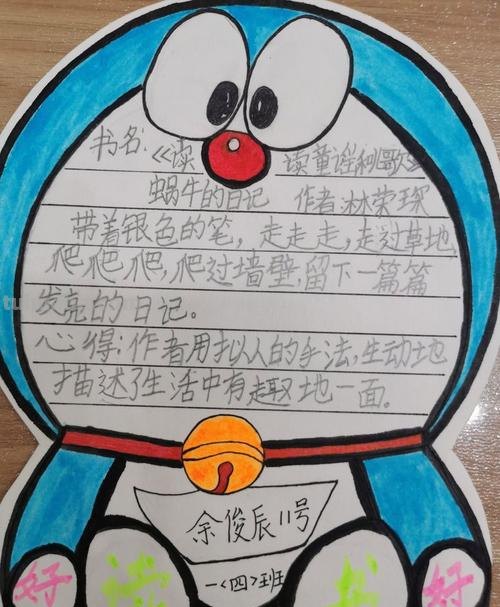 书名:《读 读童谣和歌》
蜗牛的日记 作者:林荣琛
带着银色的笔,走走走,走过草地
爬爬爬,爬过墙壁,留下一篇篇
发亮的日记。
心得:作者用拟人的手法,生动地
描述了生活中有趣地一面。
余俊辰11号
一〈四〉班
好 读 书 好